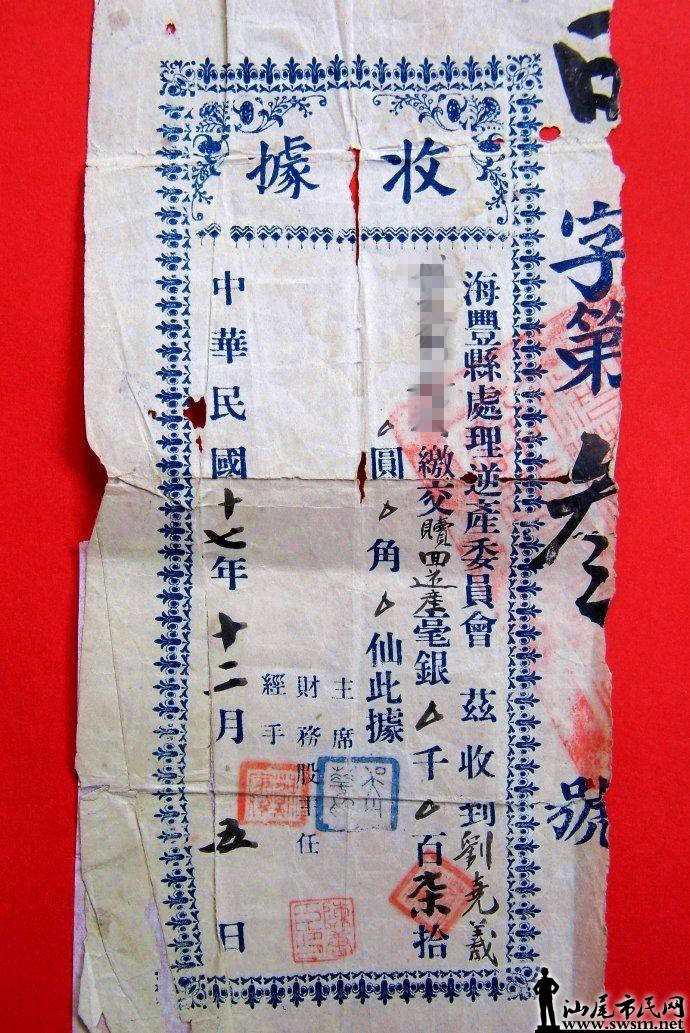 收據
字第叁號
海豐縣處理逆產委員會 茲收到劉堯義
繳交贖回逆產毫銀0千0百柒拾
0圓0角0仙此據
主席
財務股主任
經手
中華民國十七年十二月五日
汕尾市民网
www.swsm.net